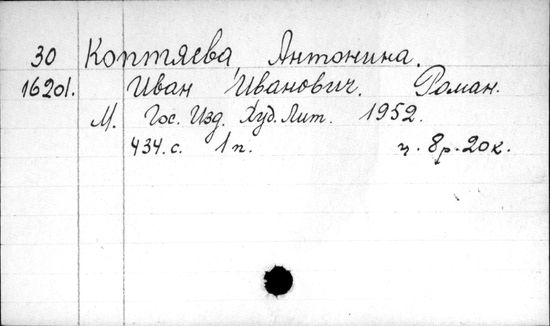 30 Коптяева, Антонина.
16201. Иван Иванович. Роман.
М. Гос. Изд. Худ. Лит. 1952.
434.с. 1п. ц. 8р.20к.